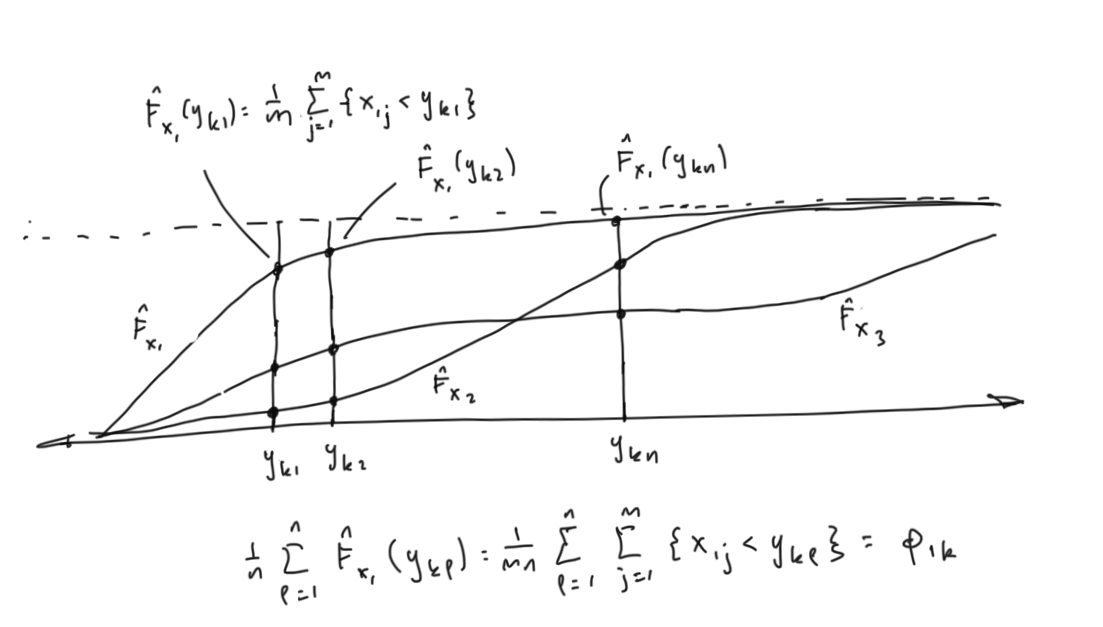 F̂ₓ₁(yₖ₁) = 1/m Σⱼ₌₁ᵐ {x₁ⱼ < yₖ₁}
F̂ₓ₁(yₖ₂)
F̂ₓ₁(yₖₙ)
F̂ₓ₁
F̂ₓ₃
F̂ₓ₂
yₖ₁
yₖ₂
yₖₙ
1/n Σ_{ℓ=1}^{n} F̂ₓ₁(y_{kℓ}) = 1/mn Σ_{ℓ=1}^{n} Σ_{j=1}^{m} {x₁ⱼ < y_{kℓ}} = φ₁ₖ